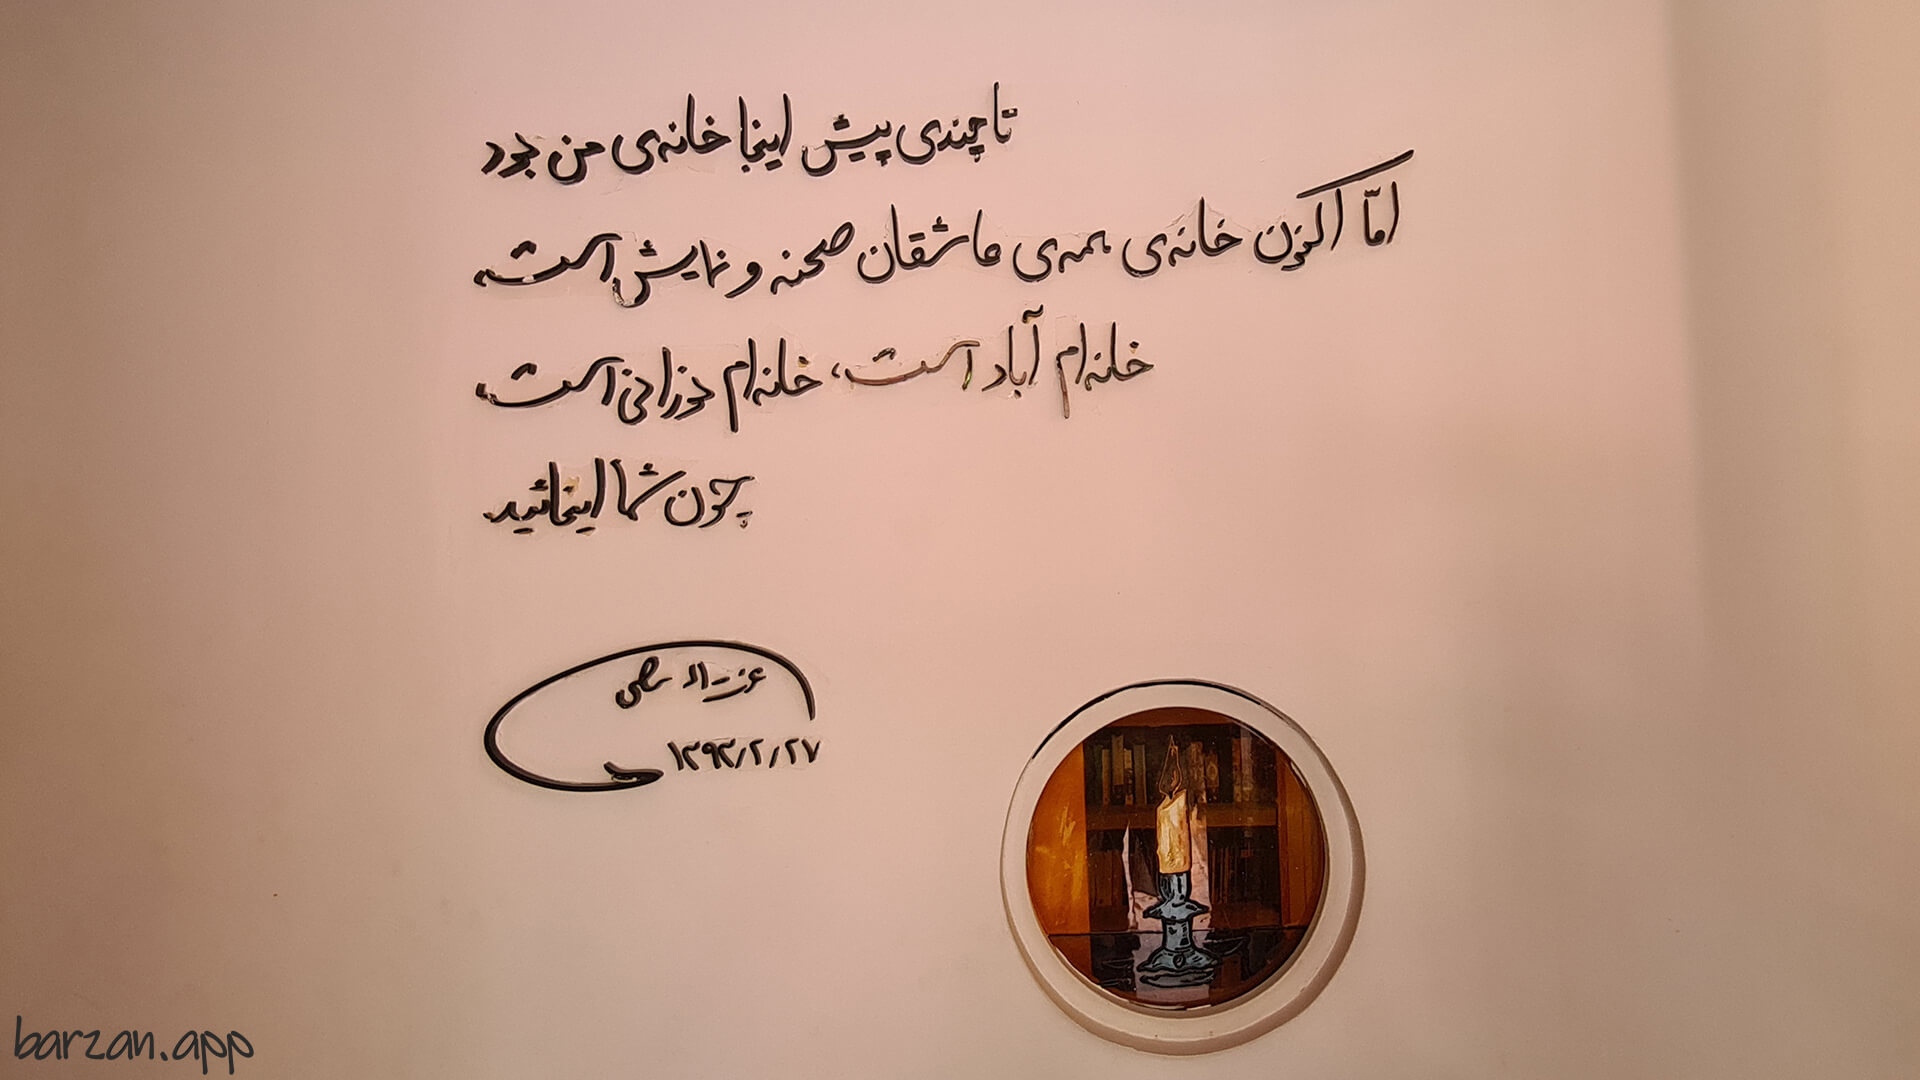 تا چندی پیش اینجا خانه‌ی من بود
امّا اکنون خانه‌ی همه‌ی عاشقان صحنه و نمایش است،
خانه‌ام آباد است، خانه‌ام نورانی است،
چون شما اینجائید.
عزت‌اله انتظامی
۱۳۹۳/۲/۲۷
barzan.app